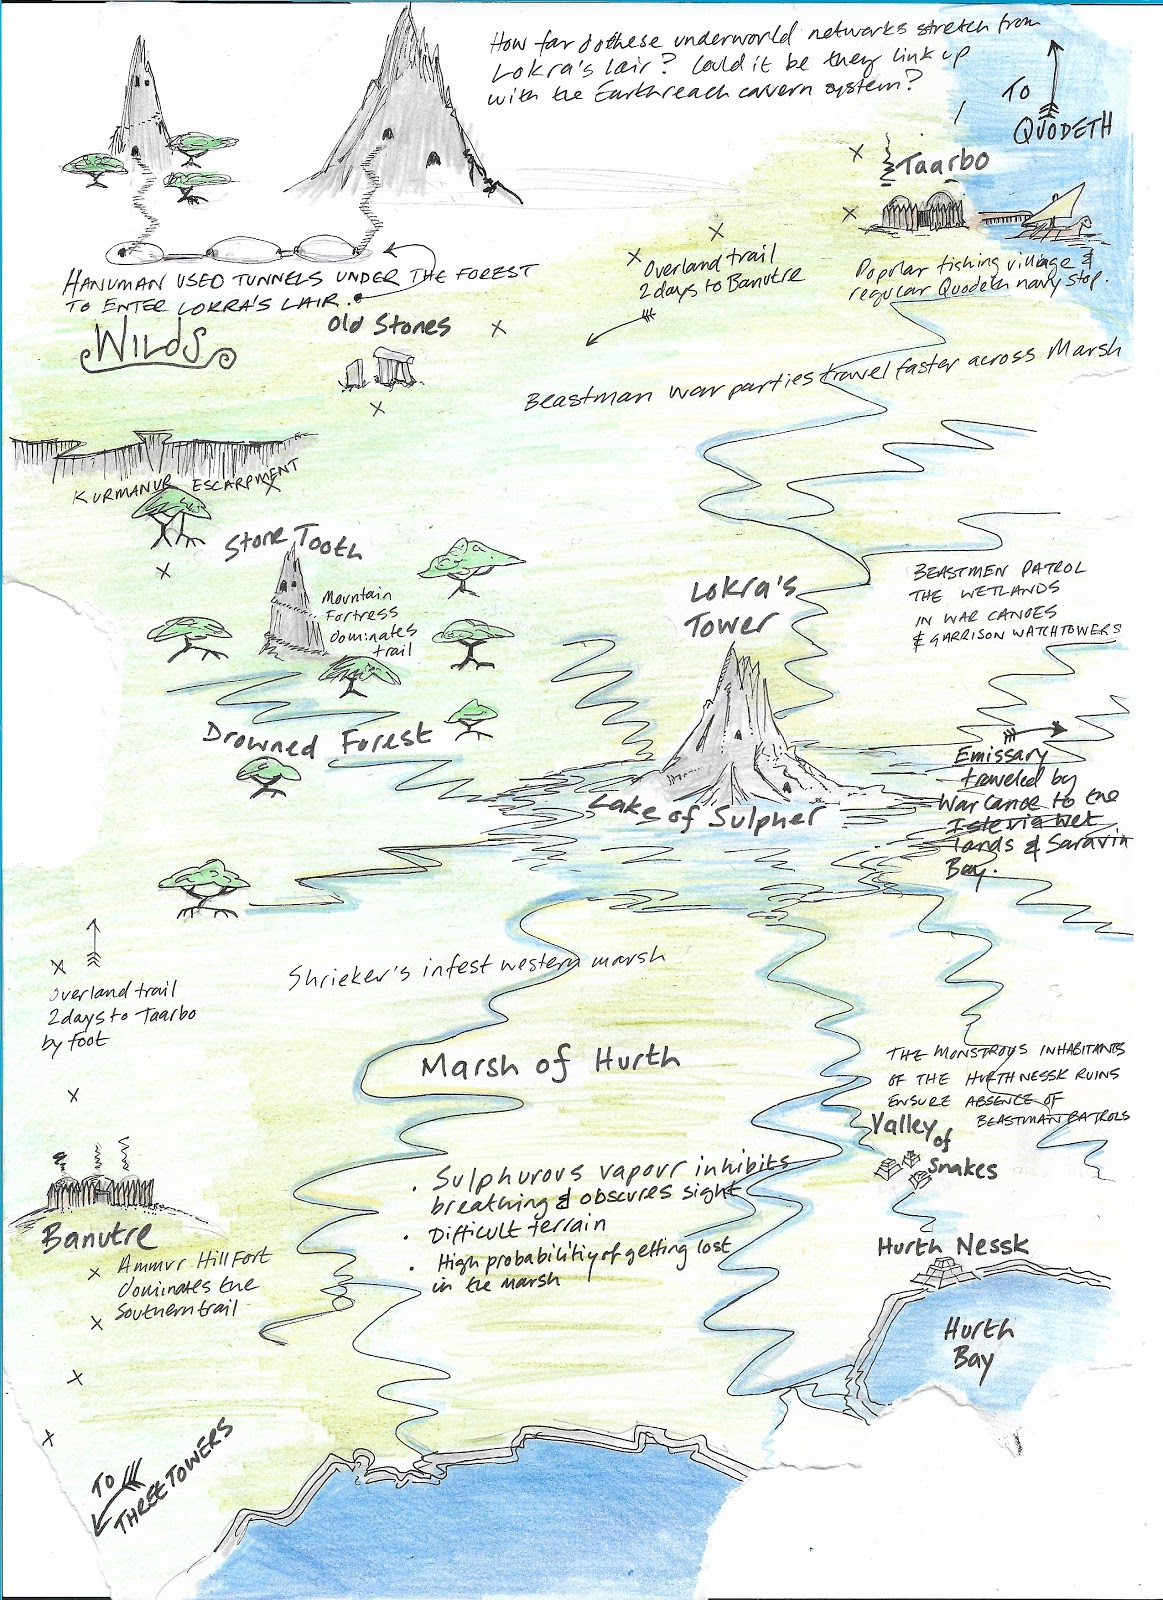 How far do these underworld networks stretch from
Lokra's lair? Could it be they link up
with the Earthreach cavern system?
TO
QUODETH
Taarbo
Popular fishing village &
regular Quodeth navy stop.
Overland trail
2 days to Banutre
HANUMAN USED TUNNELS UNDER THE FOREST
TO ENTER LOKRA'S LAIR.
WILDS
Old Stones
Beastman war parties travel faster across Marsh
KURMANUR ESCARPMENT
Stone Tooth
Mountain
Fortress
dominates
trail
Lokra's
Tower
BEASTMEN PATROL
THE WETLANDS
IN WAR CANOES
& GARRISON WATCHTOWERS
Drowned Forest
Lake of Sulpher
Emissary
traveled by
War Canoe to the
Isle via Wet
lands & Saravin
Bay.
Overland trail
2 days to Taarbo
by foot
Shrieker's infest western marsh
Marsh of Hurth
THE MONSTROUS INHABITANTS
OF THE HURTH NESSK RUINS
ENSURE ABSENCE OF
BEASTMAN PATROLS
Valley of
Snakes
Banutre
Ammur Hill Fort
dominates the
Southern trail
· Sulphurous vapour inhibits
breathing & obscures sight
· Difficult terrain
· High probability of getting lost
in the marsh
Hurth Nessk
Hurth
Bay
TO
THREE TOWERS